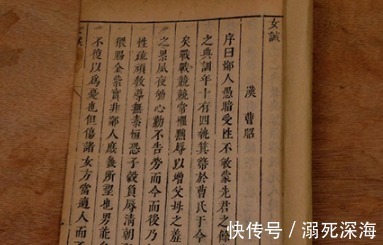 女誡
漢 曹昭
序曰鄙人愚暗受性不敏蒙先君之
之典訓年十有四執箕帚於曹氏于今
矣戰戰兢兢常懼黜辱以增父母之
之累夙夜劬心勤不告勞而今而後乃
性疏頑教導無素恒恐子穀負辱清朝
猥賜金紫實非鄙人庶幾所望也男能
不復以為憂也但傷諸女方當適人而不
女誡
快传号 / 溺死深海